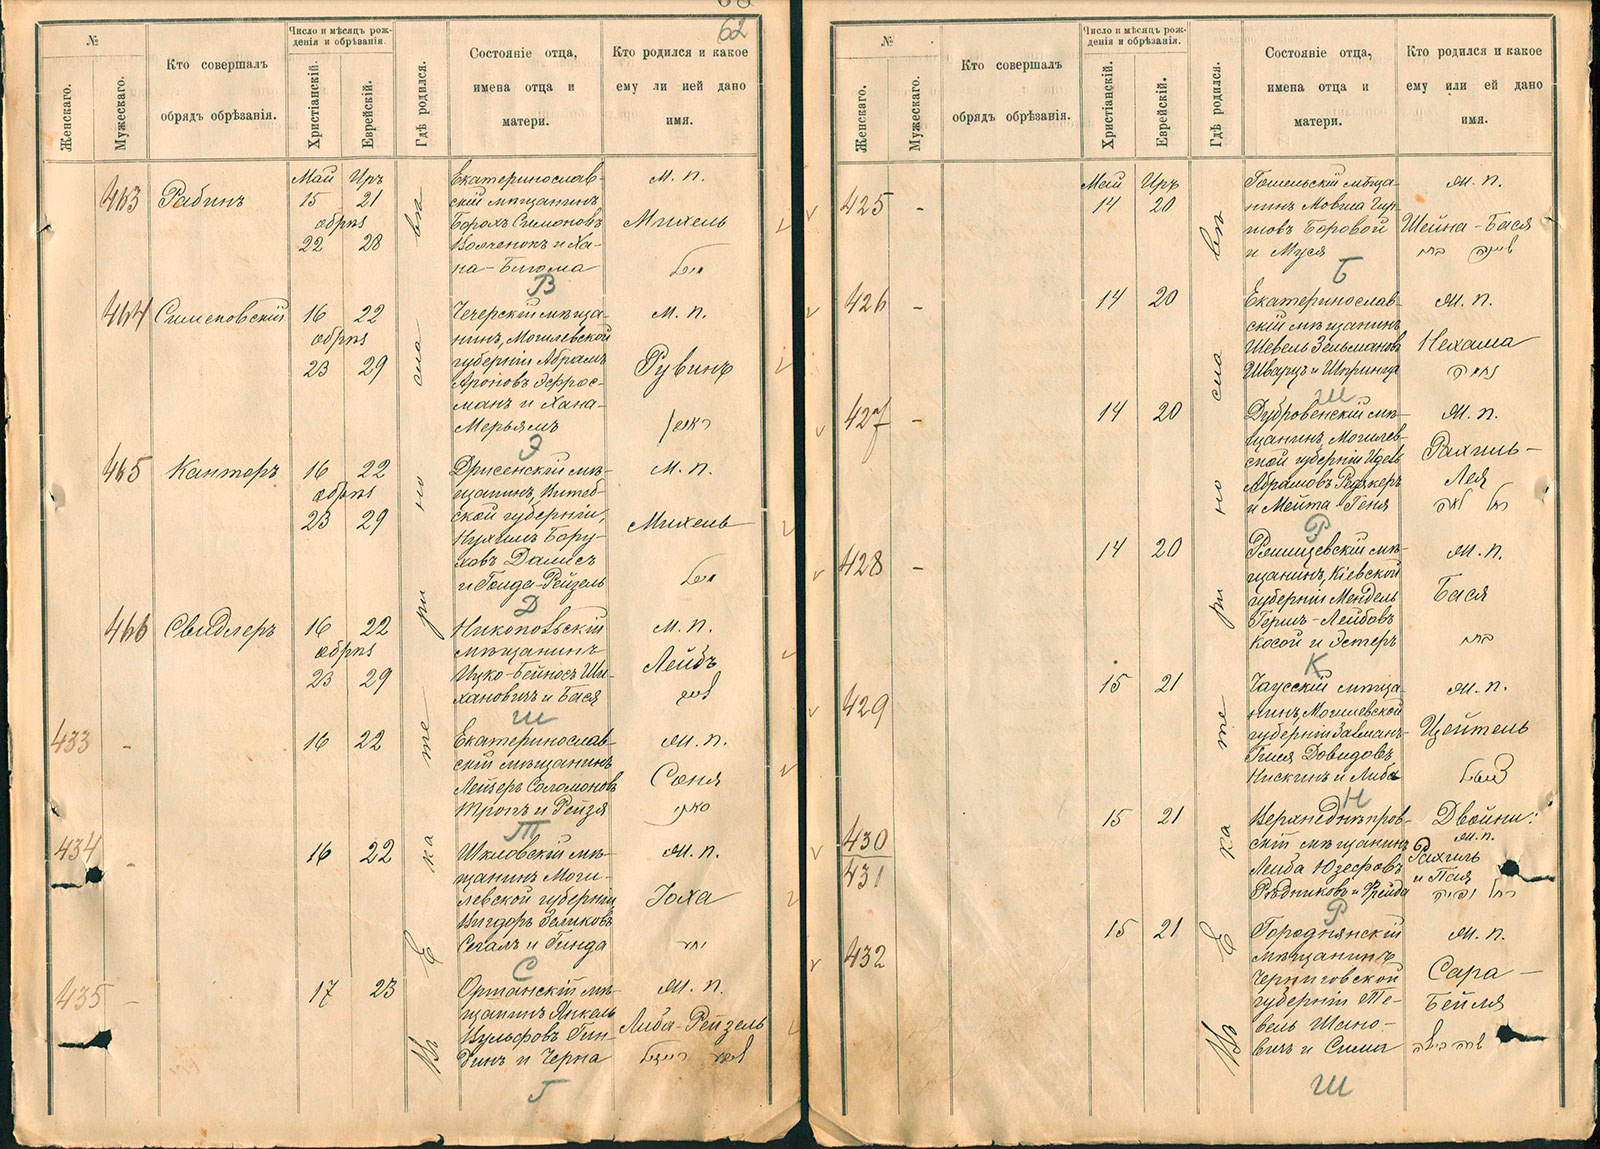 62
№
Женскаго.
Мужескаго.
Кто совершалъ
обрядъ обрѣзанія.
Число и мѣсяцъ рож-
денія и обрѣзанія.
Христіанскій.
Еврейскій.
Гдѣ родился.
Состояніе отца,
имена отца и
матери.
Кто родился и какое
ему ли ией дано
имя.
463 Рабинъ
Май Іиръ
15 21
обрѣз
22 28
Екатеринослав-
скій мѣщанинъ
Борохъ Симоновъ
Волченокъ и Ха-
на-Блюма
В
м. п.
Михель
464
16 22
обрѣз
23 29
Чечерскій мѣща-
нинъ, Могилевской
губерніи Абрамъ
Ароновъ Эфрос-
манъ и Хана-
Мерьямъ
Э
м. п.
Рувинъ
465 Канторъ
16 22
обрѣз
23 29
Дрисенскій мѣ-
щанинъ, Витеб-
ской губерніи,
Бору-
ховъ
и Голда-Рейзель
Д
м. п.
Михель
466 Свидлеръ
16 22
обрѣз
23 29
Никопольскій
мѣщанинъ
Ицко-Бейносъ Ши-
хановичъ и Бася
Ш
м. п.
Лейбъ
433 -
16 22
Екатеринослав-
скій мѣщанинъ
Лейзеръ Соломоновъ
Тропъ и Рейзя
Т
м. п.
Соня
434 -
16 22
Шкловскій мѣ-
щанинъ Моги-
левской губерніи
Вигдоръ Зеликовъ
Сегалъ и Гинда
С
м. п.
Іоха
435 -
17 23
Оршанскій мѣ-
щанинъ Янкель
Вульфовъ Гин-
динъ и Черна
Г
м. п.
Либа-Рейзель
Въ Екатеринославѣ
№
Женскаго.
Мужескаго.
Кто совершалъ
обрядъ обрѣзанія.
Число и мѣсяцъ рож-
денія и обрѣзанія.
Христіанскій.
Еврейскій.
Гдѣ родился.
Состояніе отца,
имена отца и
матери.
Кто родился и какое
ему или ей дано
имя.
425 -
Май Іиръ
14 20
Гомельскій мѣща-
нинъ Мовша Гир-
шовъ Боровой
и Муся
Б
м. п.
Шейна-Бася
שיינה בתי
426 -
14 20
Екатеринослав-
скій мѣщанинъ
Шевель Зельмановъ
Шварцъ и Шпринца
Ш
м. п.
Нехама
נחמה
427 -
14 20
Дубровенскій мѣ-
щанинъ, Могилев-
ской губерніи Идель
Абрамовъ
и Мейта Геня
Р
м. п.
Рахиль-
Лея
רחל לאה
428 -
14 20
мѣ-
щанинъ, Кіевской
губерніи Мендель
Гершъ-Лейбовъ
Косой и Эстеръ
К
м. п.
Бася
429
15 21
Чаусскій мѣща-
нинъ, Могилевской
губерніи Залманъ-
Гиля Довидовъ
Нискинъ и Либа
Н
м. п.
Цейтель
430
431
15 21
Верхнеднѣпров-
скій мѣщанинъ
Лейба Юзефовъ
Рѣдниковъ и Фрейда
Р
Двойни:
м. п.
Рахиль
и Песя
432
15 21
Городнянскій
мѣщанинъ
Черниговской
губерніи Те-
вель Шано-
вичъ и Сима
Ш
м. п.
Сара-
Бейля
שרה ביילה
Въ Екатеринославѣ